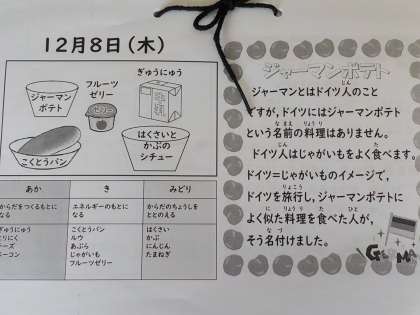 12月8日（木）
ぎゅうにゅう
フルーツ
ゼリー
ジャーマン
ポテト
こくとうパン
はくさいと
かぶの
シチュー
あか
き
みどり
からだをつくるもとに
なる
エネルギーのもとに
なる
からだのちょうしを
ととのえる
ぎゅうにゅう
とりにく
チーズ
ベーコン
こくとうパン
ルウ
あぶら
じゃがいも
フルーツゼリー
はくさい
かぶ
にんじん
たまねぎ
ジャーマンポテト
ジャーマンとはドイツ人のこと
ですが、ドイツにはジャーマンポテト
という名前の料理はありません。
ドイツ人はじゃがいもをよく食べます。
ドイツ=じゃがいものイメージで、
ドイツを旅行し、ジャーマンポテトに
よく似た料理を食べた人が、
そう名付けました。